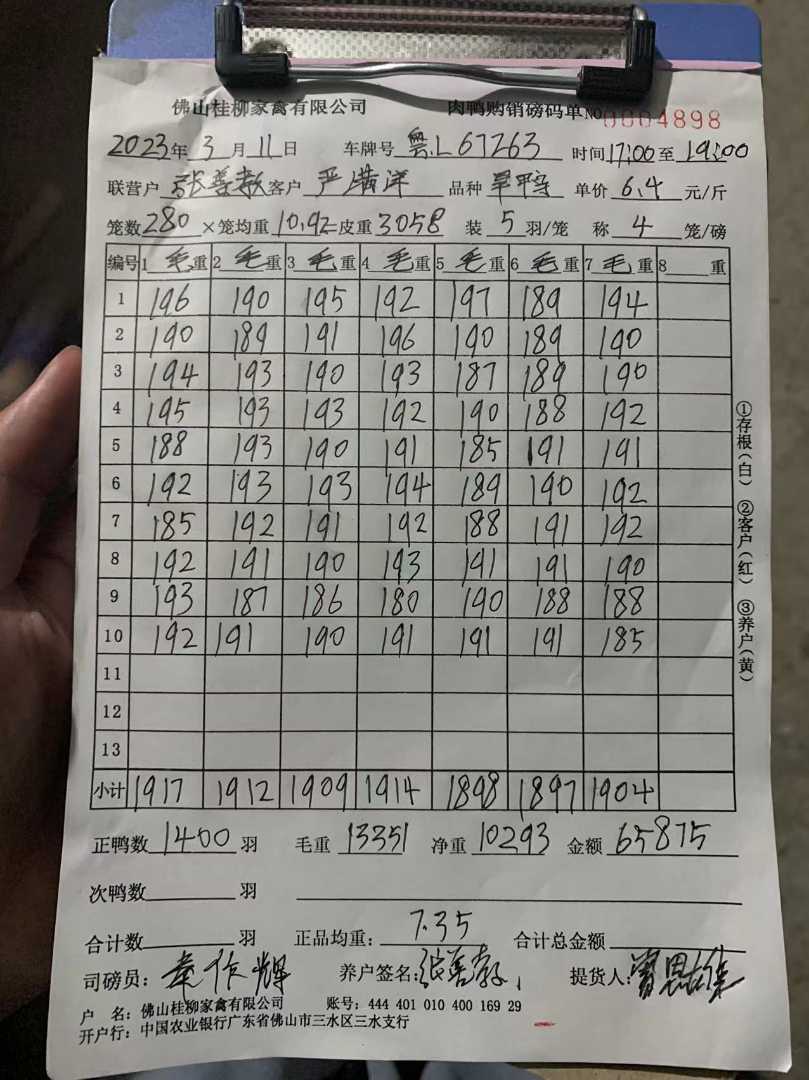 佛山桂柳家禽有限公司 肉鸭购销磅码单 No 0004898
2023年 3 月 11 日 车牌号 粤L67263 时间 17:00 至 19:00
联营户 客户 严满洋 品种 单价 6.4 元/斤
笼数 280 ×笼均重 10.92 皮重 3058 装 5 羽/笼 称 4 笼/磅
编号 1 毛重 2 毛重 3 毛重 4 毛重 5 毛重 6 毛重 7 毛重 8 重
1 196 190 195 192 197 189 194
2 190 189 191 196 190 189 190
3 194 193 190 193 187 189 190
4 195 193 193 192 190 188 192
5 188 193 190 191 185 191 191
6 192 193 193 194 189 190 192
7 185 192 191 192 188 191 192
8 192 191 190 193 191 191 190
9 193 187 186 180 190 188 188
10 192 191 190 191 191 191 185
11
12
13
小计 1917 1912 1909 1914 1898 1897 1904
正鸭数 1400 羽 毛重 13351 净重 10293 金额 65875
次鸭数 羽
合计数 羽 正品均重: 7.35 合计总金额
司磅员: 韦作辉 养户签名: 提货人:
户 名: 佛山桂柳家禽有限公司 账号: 444 401 010 400 169 29
开户行: 中国农业银行广东省佛山市三水区三水支行
①存根(白) ②客户(红) ③养户(黄)